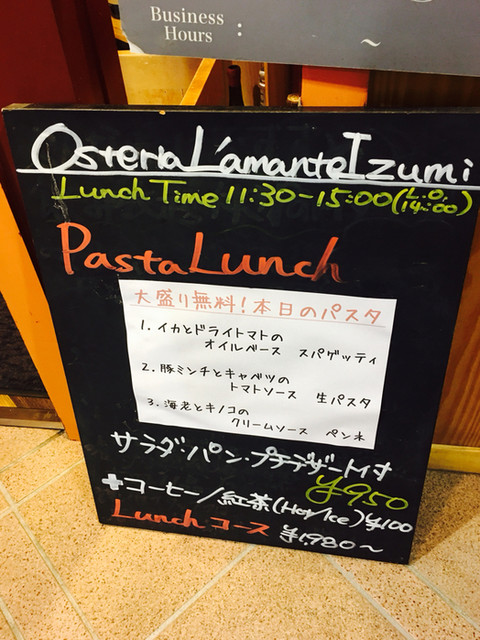 Business
Hours :
~
Osteria L'amante Izumi
Lunch Time 11:30-15:00(L.O. 14:00)
Pasta Lunch
大盛り無料!本日のパスタ
1. イカとドライトマトの
オイルベース スパゲッティ
2. 豚ミンチとキャベツの
トマトソース 生パスタ
3. 海老とキノコの
クリームソース ペンネ
サラダ・パン・プチデザート付
¥950
+コーヒー/紅茶(Hot/Ice)¥100
Lunchコース ¥1,980~